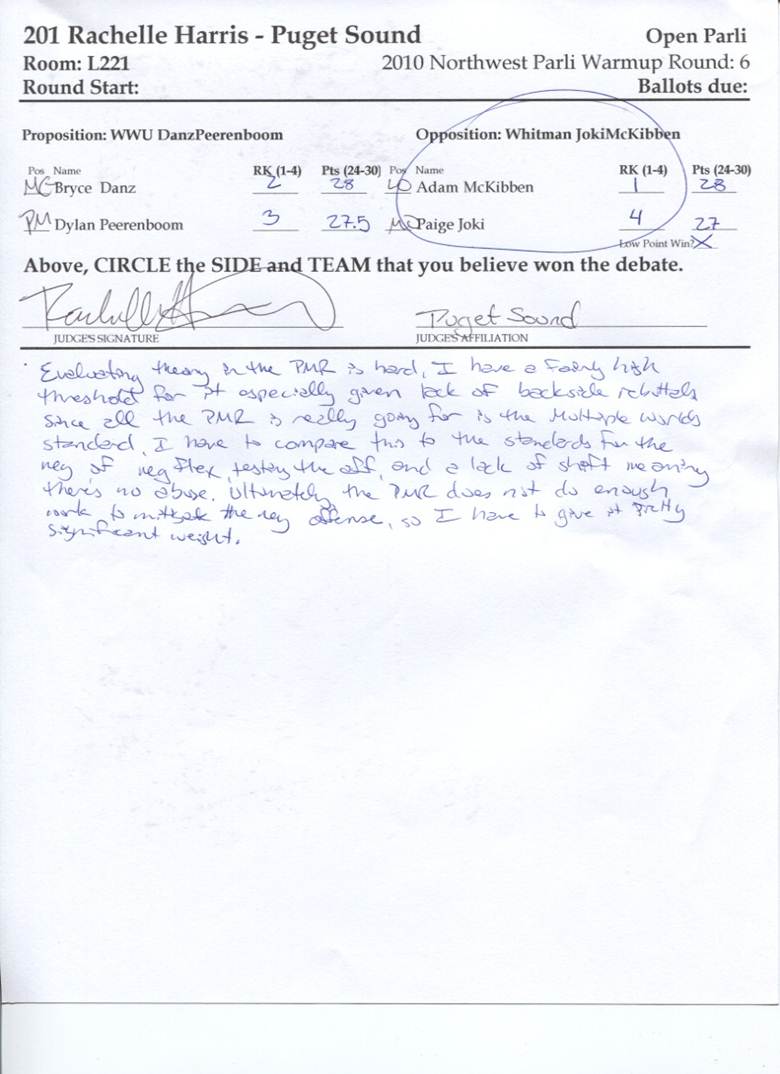 201 Rachelle Harris - Puget Sound Open Parli
Room: L221 2010 Northwest Parli Warmup Round: 6
Round Start: Ballots due:
Proposition: WWU DanzPeerenboom Opposition: Whitman JokiMcKibben
Pos Name RK (1-4) Pts (24-30) Pos Name RK (1-4) Pts (24-30)
MG Bryce Danz 2 28 LO Adam McKibben 1 28
PM Dylan Peerenboom 3 27.5 MO Paige Joki 4 27
Low Point Win? X
Above, CIRCLE the SIDE and TEAM that you believe won the debate.
Rachelle H Puget Sound
JUDGE'S SIGNATURE JUDGE'S AFFILIATION
Evaluating theory in the PMR is hard, I have a fairly high
threshold for it especially given lack of backside rebuttals
since all the PMR is really going for is the Multiple worlds
standard, I have to compare this to the standards for the
neg of neg flex, testing the aff, and a lack of shaft meaning
there's no abuse. Ultimately the PMR does not do enough
work to mitigate the neg offense, so I have to give it pretty
significant weight.